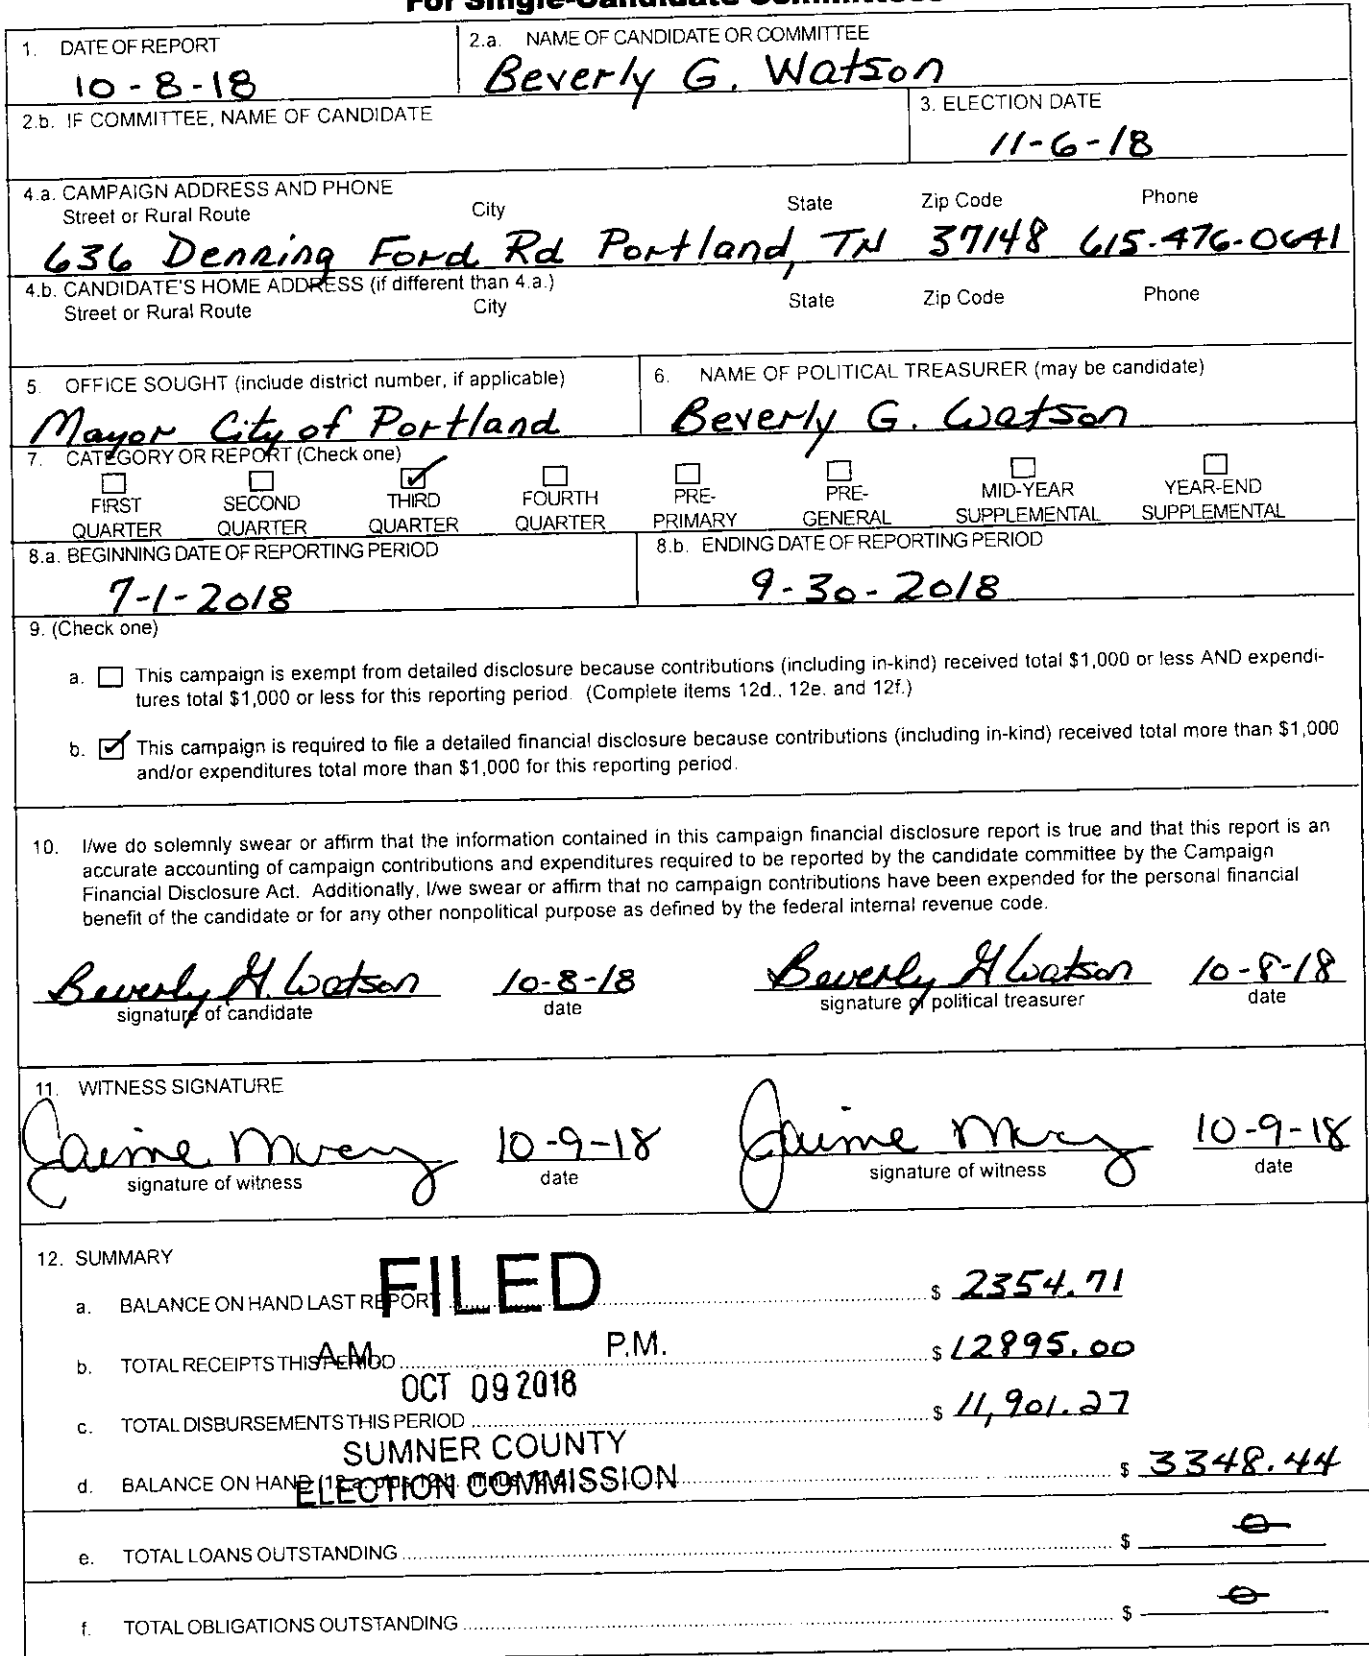 For Single-Candidate Committees
1. DATE OF REPORT
10-8-18
2.a. NAME OF CANDIDATE OR COMMITTEE
Beverly G. Watson
2.b. IF COMMITTEE, NAME OF CANDIDATE
3. ELECTION DATE
11-6-18
4.a. CAMPAIGN ADDRESS AND PHONE
Street or Rural Route City State Zip Code Phone
636 Denning Ford Rd Portland, TN 37148 615-476-0641
4.b. CANDIDATE'S HOME ADDRESS (if different than 4.a.)
Street or Rural Route City State Zip Code Phone
5. OFFICE SOUGHT (include district number, if applicable)
Mayor City of Portland
6. NAME OF POLITICAL TREASURER (may be candidate)
Beverly G. Watson
7. CATEGORY OR REPORT (Check one)
☐ FIRST QUARTER
☐ SECOND QUARTER
☑ THIRD QUARTER
☐ FOURTH QUARTER
☐ PRE-PRIMARY
☐ PRE-GENERAL
☐ MID-YEAR SUPPLEMENTAL
☐ YEAR-END SUPPLEMENTAL
8.a. BEGINNING DATE OF REPORTING PERIOD
7-1-2018
8.b. ENDING DATE OF REPORTING PERIOD
9-30-2018
9. (Check one)
a. ☐ This campaign is exempt from detailed disclosure because contributions (including in-kind) received total $1,000 or less AND expendi-
tures total $1,000 or less for this reporting period. (Complete items 12d., 12e. and 12f.)
b. ☑ This campaign is required to file a detailed financial disclosure because contributions (including in-kind) received total more than $1,000
and/or expenditures total more than $1,000 for this reporting period.
10. I/we do solemnly swear or affirm that the information contained in this campaign financial disclosure report is true and that this report is an
accurate accounting of campaign contributions and expenditures required to be reported by the candidate committee by the Campaign
Financial Disclosure Act. Additionally, I/we swear or affirm that no campaign contributions have been expended for the personal financial
benefit of the candidate or for any other nonpolitical purpose as defined by the federal internal revenue code.
Beverly G. Watson 10-8-18 Beverly G Watson 10-8-18
signature of candidate date signature of political treasurer date
11. WITNESS SIGNATURE
Jaime 10-9-18 Jaime 10-9-18
signature of witness date signature of witness date
12. SUMMARY
FILED
a. BALANCE ON HAND LAST REPORT $ 2354.71
A.M. P.M.
b. TOTAL RECEIPTS THIS PERIOD $ 12895.00
OCT 09 2018
c. TOTAL DISBURSEMENTS THIS PERIOD $ 11,901.27
SUMNER COUNTY
d. BALANCE ON HAND (12.a. plus 12.b. minus 12.c.) $ 3348.44
ELECTION COMMISSION
e. TOTAL LOANS OUTSTANDING $ 0
f. TOTAL OBLIGATIONS OUTSTANDING $ 0